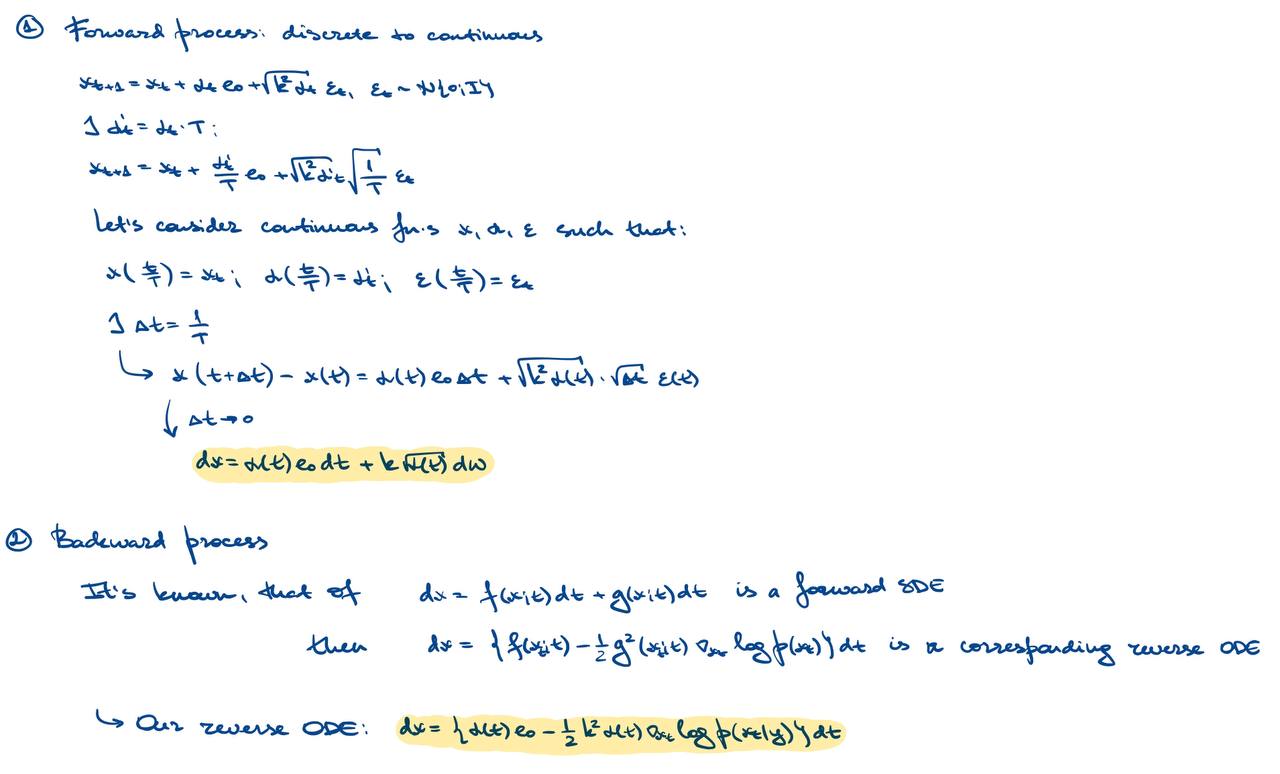 ① Forward process: discrete to continuous
x_{t+1} = x_t + α_t e_0 + √(k² α_t) ε_t, ε_t ~ N{0; I}
] α'_t = α_t · T:
x_{t+1} = x_t + α'_t/T e_0 + √(k² α'_t) √(1/T) ε_t
Let's consider continuous fn·s x, α, ε such that:
x(t/T) = x_t; α(t/T) = α'_t; ε(t/T) = ε_t
] Δt = 1/T
↳ x(t+Δt) - x(t) = α(t) e_0 Δt + √(k² α(t)) · √Δt ε(t)
↓ Δt → 0
dx = α(t) e_0 dt + k √α(t) dw
② Backward process
It's known, that if dx = f(x, t) dt + g(x, t) dt is a forward SDE
then dx = {f(x_t, t) - 1/2 g²(x_t, t) ∇_{x_t} log p(x_t)} dt is a corresponding reverse ODE
↳ Our reverse ODE: dx = {α(t) e_0 - 1/2 k² α(t) ∇_{x_t} log p(x_t|y)} dt